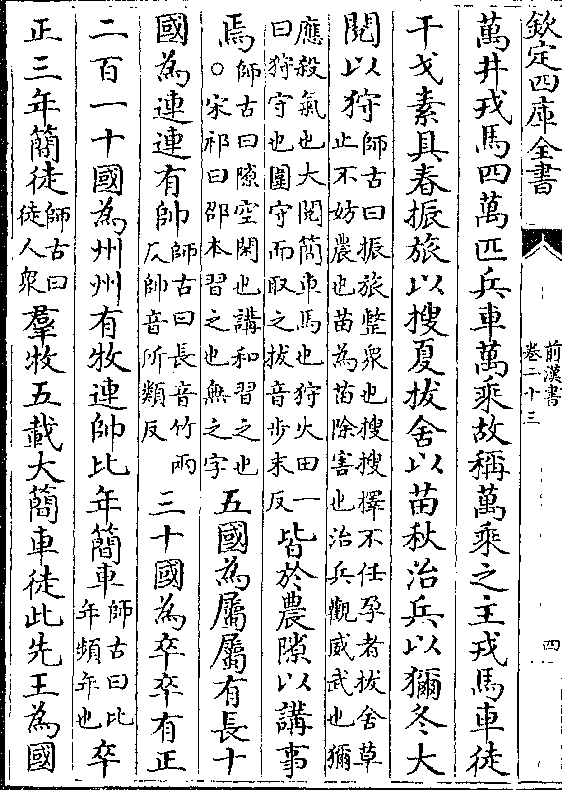 欽定四庫全書
前漢書
卷二十三
四
萬井戎馬四萬匹兵車萬乘故稱萬乘之主戎馬車徒
干戈素具春振旅以搜夏拔舍以苗秋治兵以獮冬大
閱以狩師古曰振旅整衆也搜搜擇不任孕者拔舍草止不妨農也苗為苗除害也治兵觀威武也獮
應殺氣也大閱簡車馬也狩火田一曰狩守也圍守而取之拔音步末反皆於農隙以講事
焉師古曰隙空閑也講和習之也○宋祁曰邵本習之也無之字五國為屬屬有長十
國為連連有帥師古曰長音竹兩反帥音所類反三十國為卒卒有正
二百一十國為州州有牧連帥比年簡車師古曰比年頻年也卒
正三年簡徒師古曰徒人衆羣牧五載大簡車徒此先王為國